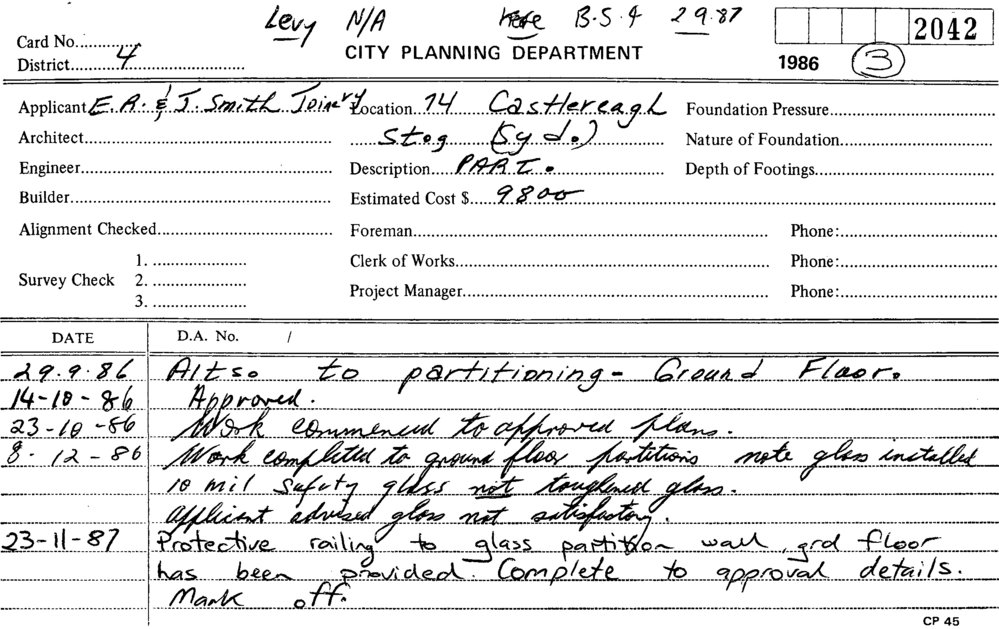 Levy N/A B.S.4 2 9.87
2042
Card No.
CITY PLANNING DEPARTMENT
District 4
1986 3
Applicant E. A. & J. Smith Joinery Location 74 Castlereagh Foundation Pressure
Architect Stog (Syd.) Nature of Foundation
Engineer Description PART. Depth of Footings
Builder Estimated Cost $ 9800
Alignment Checked Foreman Phone:
1. Clerk of Works Phone:
Survey Check 2.
Project Manager Phone:
3.
DATE D.A. No. /
29.9.86 Altso to partitioning - Ground Floor.
14-10-86 Approved.
23-10-86 Work commenced to approved plans.
8-12-86 Work completed to ground floor partitions note glass installed
10 mil safety glass not toughened glass.
applicant advised glass not satisfactory.
23-11-87 Protective railing to glass partition wall, grd floor
has been provided. Complete to approval details.
Mark off.
CP 45